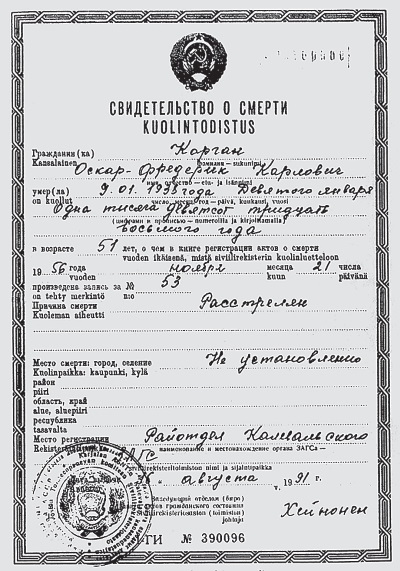 СВИДЕТЕЛЬСТВО О СМЕРТИ
KUOLINTODISTUS
Гражданин (ка) Корган
Kansalainen фамилия — sukunimi
Оскар-Фредерик Карлович
имя, отчество — etu- ja isännimi
умер(ла) 9.01.1938 года Девятого января
on kuollut число, месяц, год — päivä, kuukausi, vuosi
Одна тысяча девятсот тридцать
(цифрами и прописью — numeroilla ja kirjaimilla)
восьмого года
в возрасте 51 лет, о чем в книге регистрации актов о смерти
vuoden ikäisenä, mistä siviilirekisterin kuolinluetteloon
1956 года ноября месяца 21 числа
vuoden kuun päivänä
произведена запись за № 53
on tehty merkintö n:o
Причина смерти Расстрелян
Kuoleman aiheutti
Место смерти: город, селение Не установлено
Kuolinpaikka: kaupunki, kylä
район
piiri
область, край
alue, aluepiiri
республика
tasavalta
Место регистрации Райотдел Калевальского
наименование и местонахождение органа ЗАГСа —
ЗАГС
siviilirekisteritoimiston nimi ja sijaintipaikka
августа 1991 г.
Заведующий отделом (бюро)
записи актов гражданского состояния
Siviilirekisteriosaston (toimiston)
johtaja
Хейнонен
ГИ № 390096